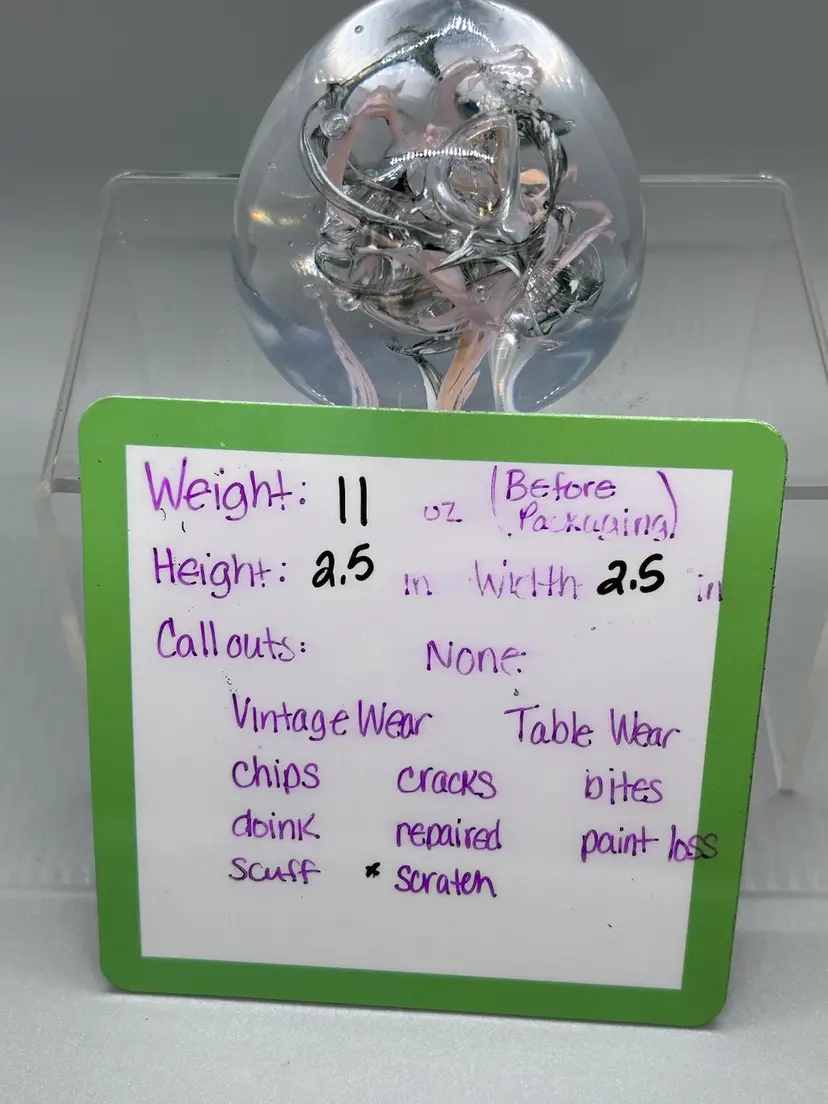 Weight: 11 oz (Before Packaging)
Height: 2.5 in Width 2.5 in
Callouts: None
Vintage Wear Table Wear
chips cracks bites
doink repaired paint loss
scuff * scratch